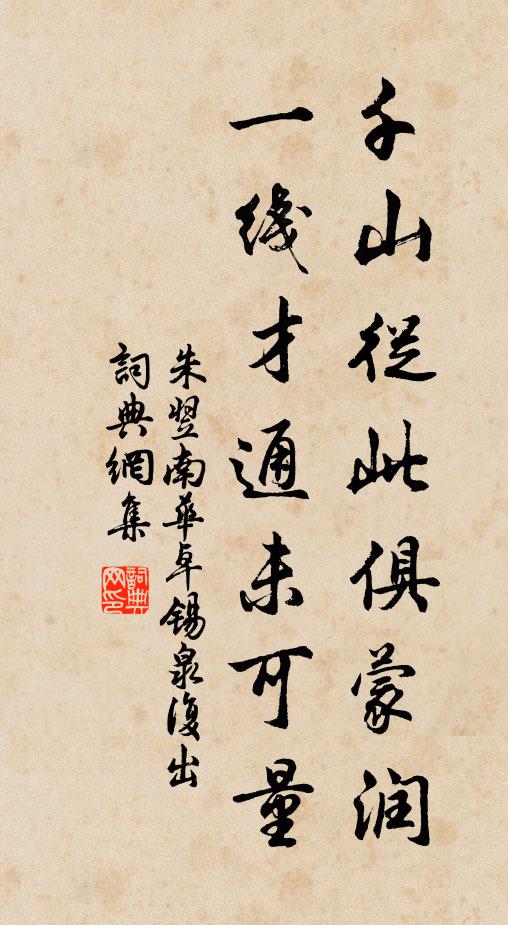 千山從此俱蒙润
一线才通未可量
朱翌南華卓錫泉復出
詞典網集
詞典网印